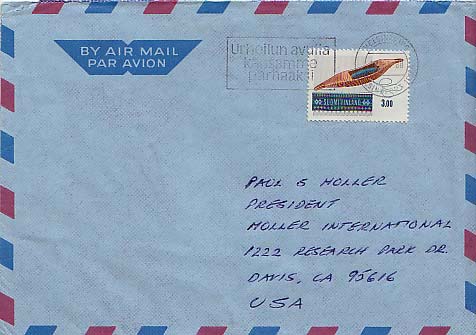 BY AIR MAIL
PAR AVION
Urheilun avulla
kansamme
parhaaksi
SUOMI FINLAND
3,00
PAUL S MOLLER
PRESIDENT
MOLLER INTERNATIONAL
1222 RESEARCH PARK DR.
DAVIS, CA 95616
USA